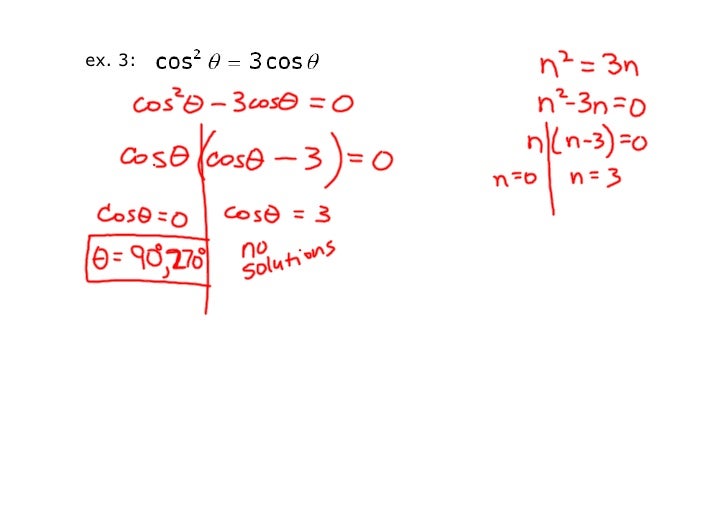 ex. 3: cos² θ = 3 cos θ
cos²θ - 3cosθ = 0
cosθ (cosθ - 3) = 0
cosθ = 0 cosθ = 3
θ = 90°, 270° no solutions
n² = 3n
n² - 3n = 0
n (n - 3) = 0
n = 0 n = 3